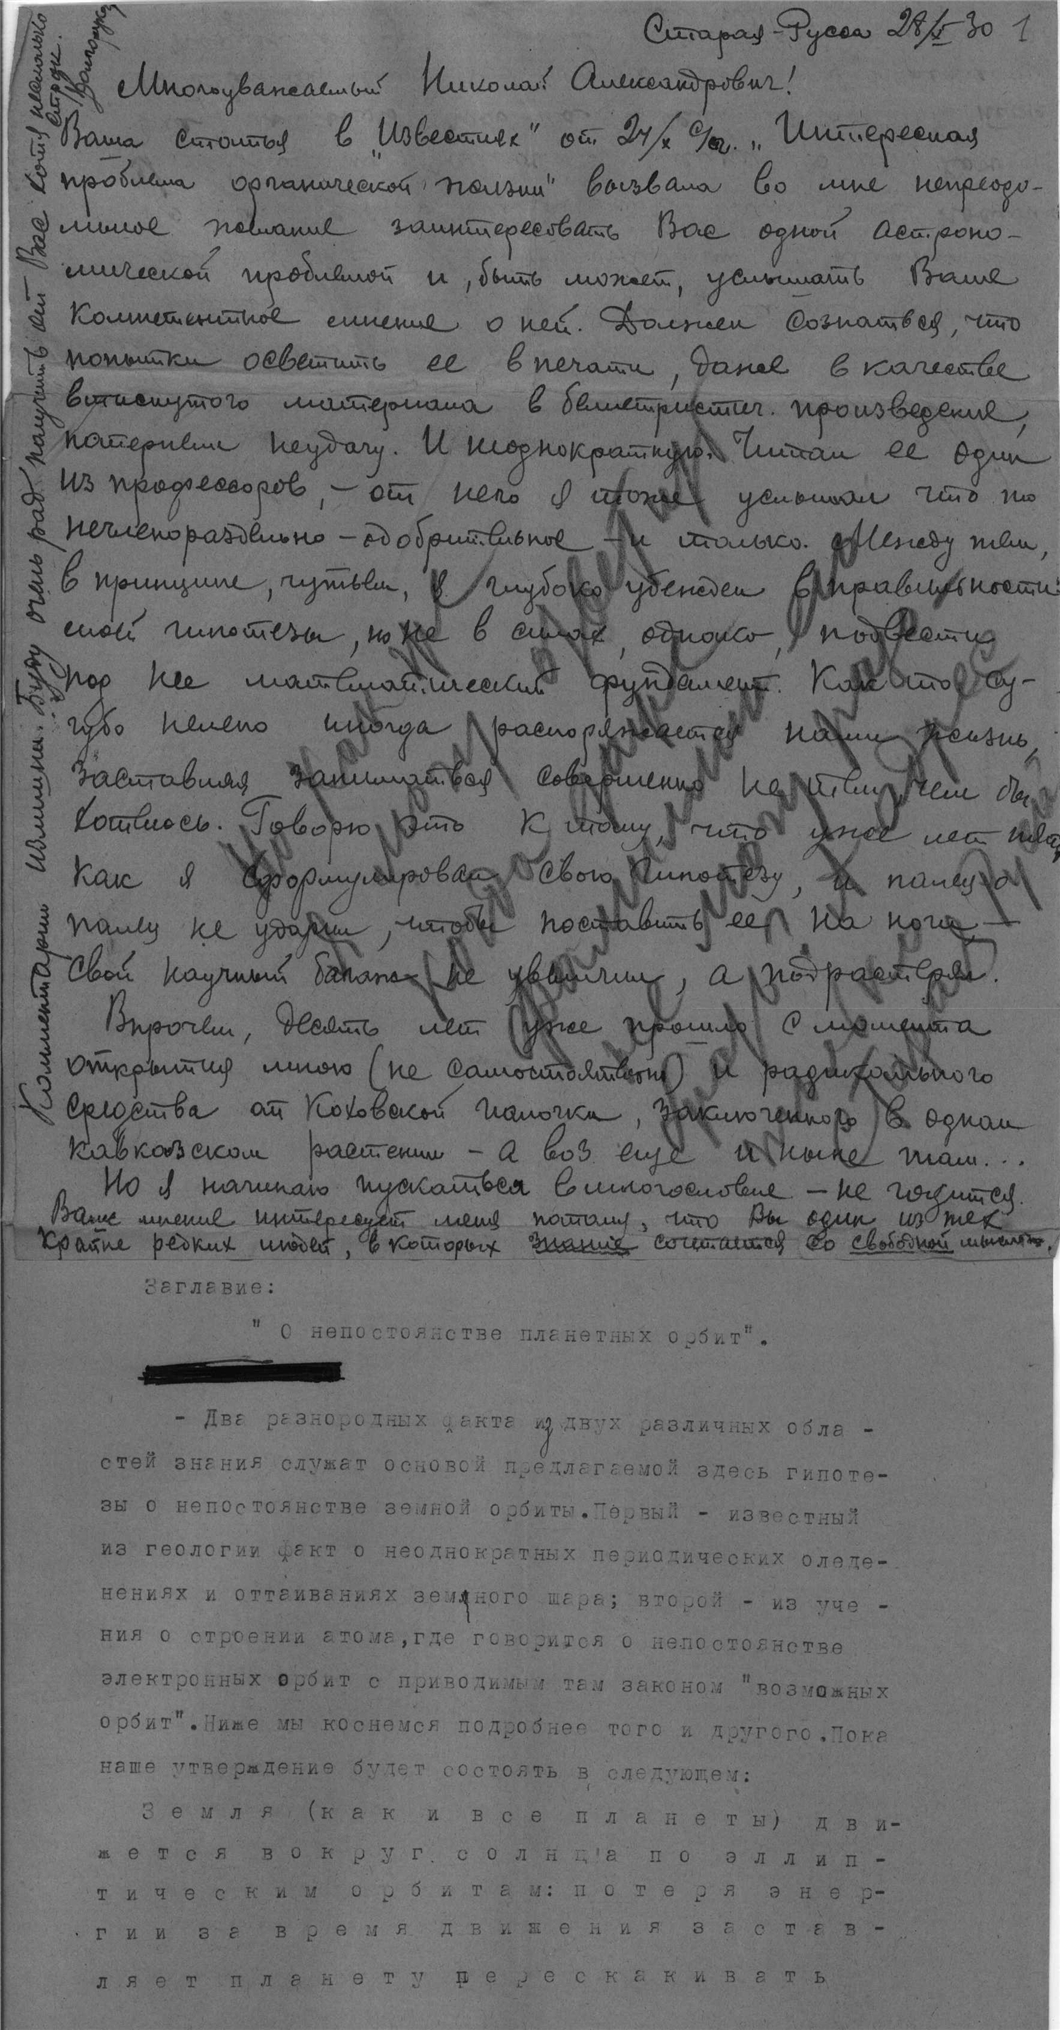 Старая-Русса 28/X 30 1
Многоуважаемый Николай Александрович!
Ваша статья в „Известиях" от 24/X с/г. „Интересная
проблема органической жизни" вызвала во мне непреодо-
лимое желание заинтересовать Вас одной астроно-
мической проблемой и, быть может, услышать Ваше
компетентное мнение о ней. Должен сознаться, что
попытки осветить ее в печати, даже в качестве
втиснутого материала в беллетристич. произведение,
потерпели неудачу. И неоднократную. Читал ее один
из профессоров, – от него я тоже услышал что то
нечленораздельно – одобрительное – и только. Между тем,
в принципе, чутьем, я глубоко убежден в правильности
своей гипотезы, но не в силах, однако, подвести
под нее математический фундамент. Как то су-
губо нелепо иногда распоряжается нами жизнь,
заставляя заниматься совершенно не тем, чем бы
хотелось. Говорю это к тому, что уже лет пять,
как я сформулировал свою гипотезу, и палец о
палец не ударил, чтобы поставить ее на ноги, –
свой научный багаж не увеличил, а подрастерял.
Впрочем, десять лет уже прошло с момента
открытия мною (не самостоятельно) и радикального
средства от Коховской палочки, заключенного в одном
кавказском растении – а воз еще и ныне там...
Но я начинаю пускаться в многословие – не годится.
Ваше мнение интересует меня потому, что Вы один из тех
крайне редких людей, в которых знание сочетается со свободной мыслью.
Комментарии излишни. Буду очень рад получить от Вас хотя несколько
строк.
Заглавие:
" О непостоянстве планетных орбит".
- Два разнородных факта из двух различных обла -
стей знания служат основой предлагаемой здесь гипоте-
зы о непостоянстве земной орбиты.Первый - известный
из геологии факт о неоднократных периодических оледе-
нениях и оттаиваниях земного шара; второй - из уче -
ния о строении атома,где говорится о непостоянстве
электронных орбит с приводимым там законом "возможных
орбит".Ниже мы коснемся подробнее того и другого.Пока
наше утверждение будет состоять в следующем:
Земля (как и все планеты) дви-
жется вокруг солнца по эллип -
тическим орбитам: потеря энер-
гии за время движения застав -
ляет планету перескакивать